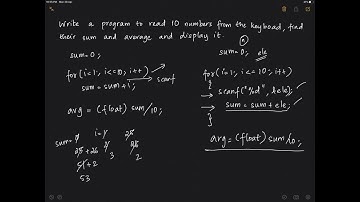 Write a program to read 10 numbers from the keyboad, find
their sum and average and display it.
sum=0;
for(i=1; i<=10; i++)
scanf
sum = sum+i;
avg = (float) sum/10;
sum=
i=
+26
3
2
53
sum=0; ele
for(i=1; i<=10; i++)
{
scanf("%d", &ele);
sum = sum+ele;
}
avg = (float) sum/10;